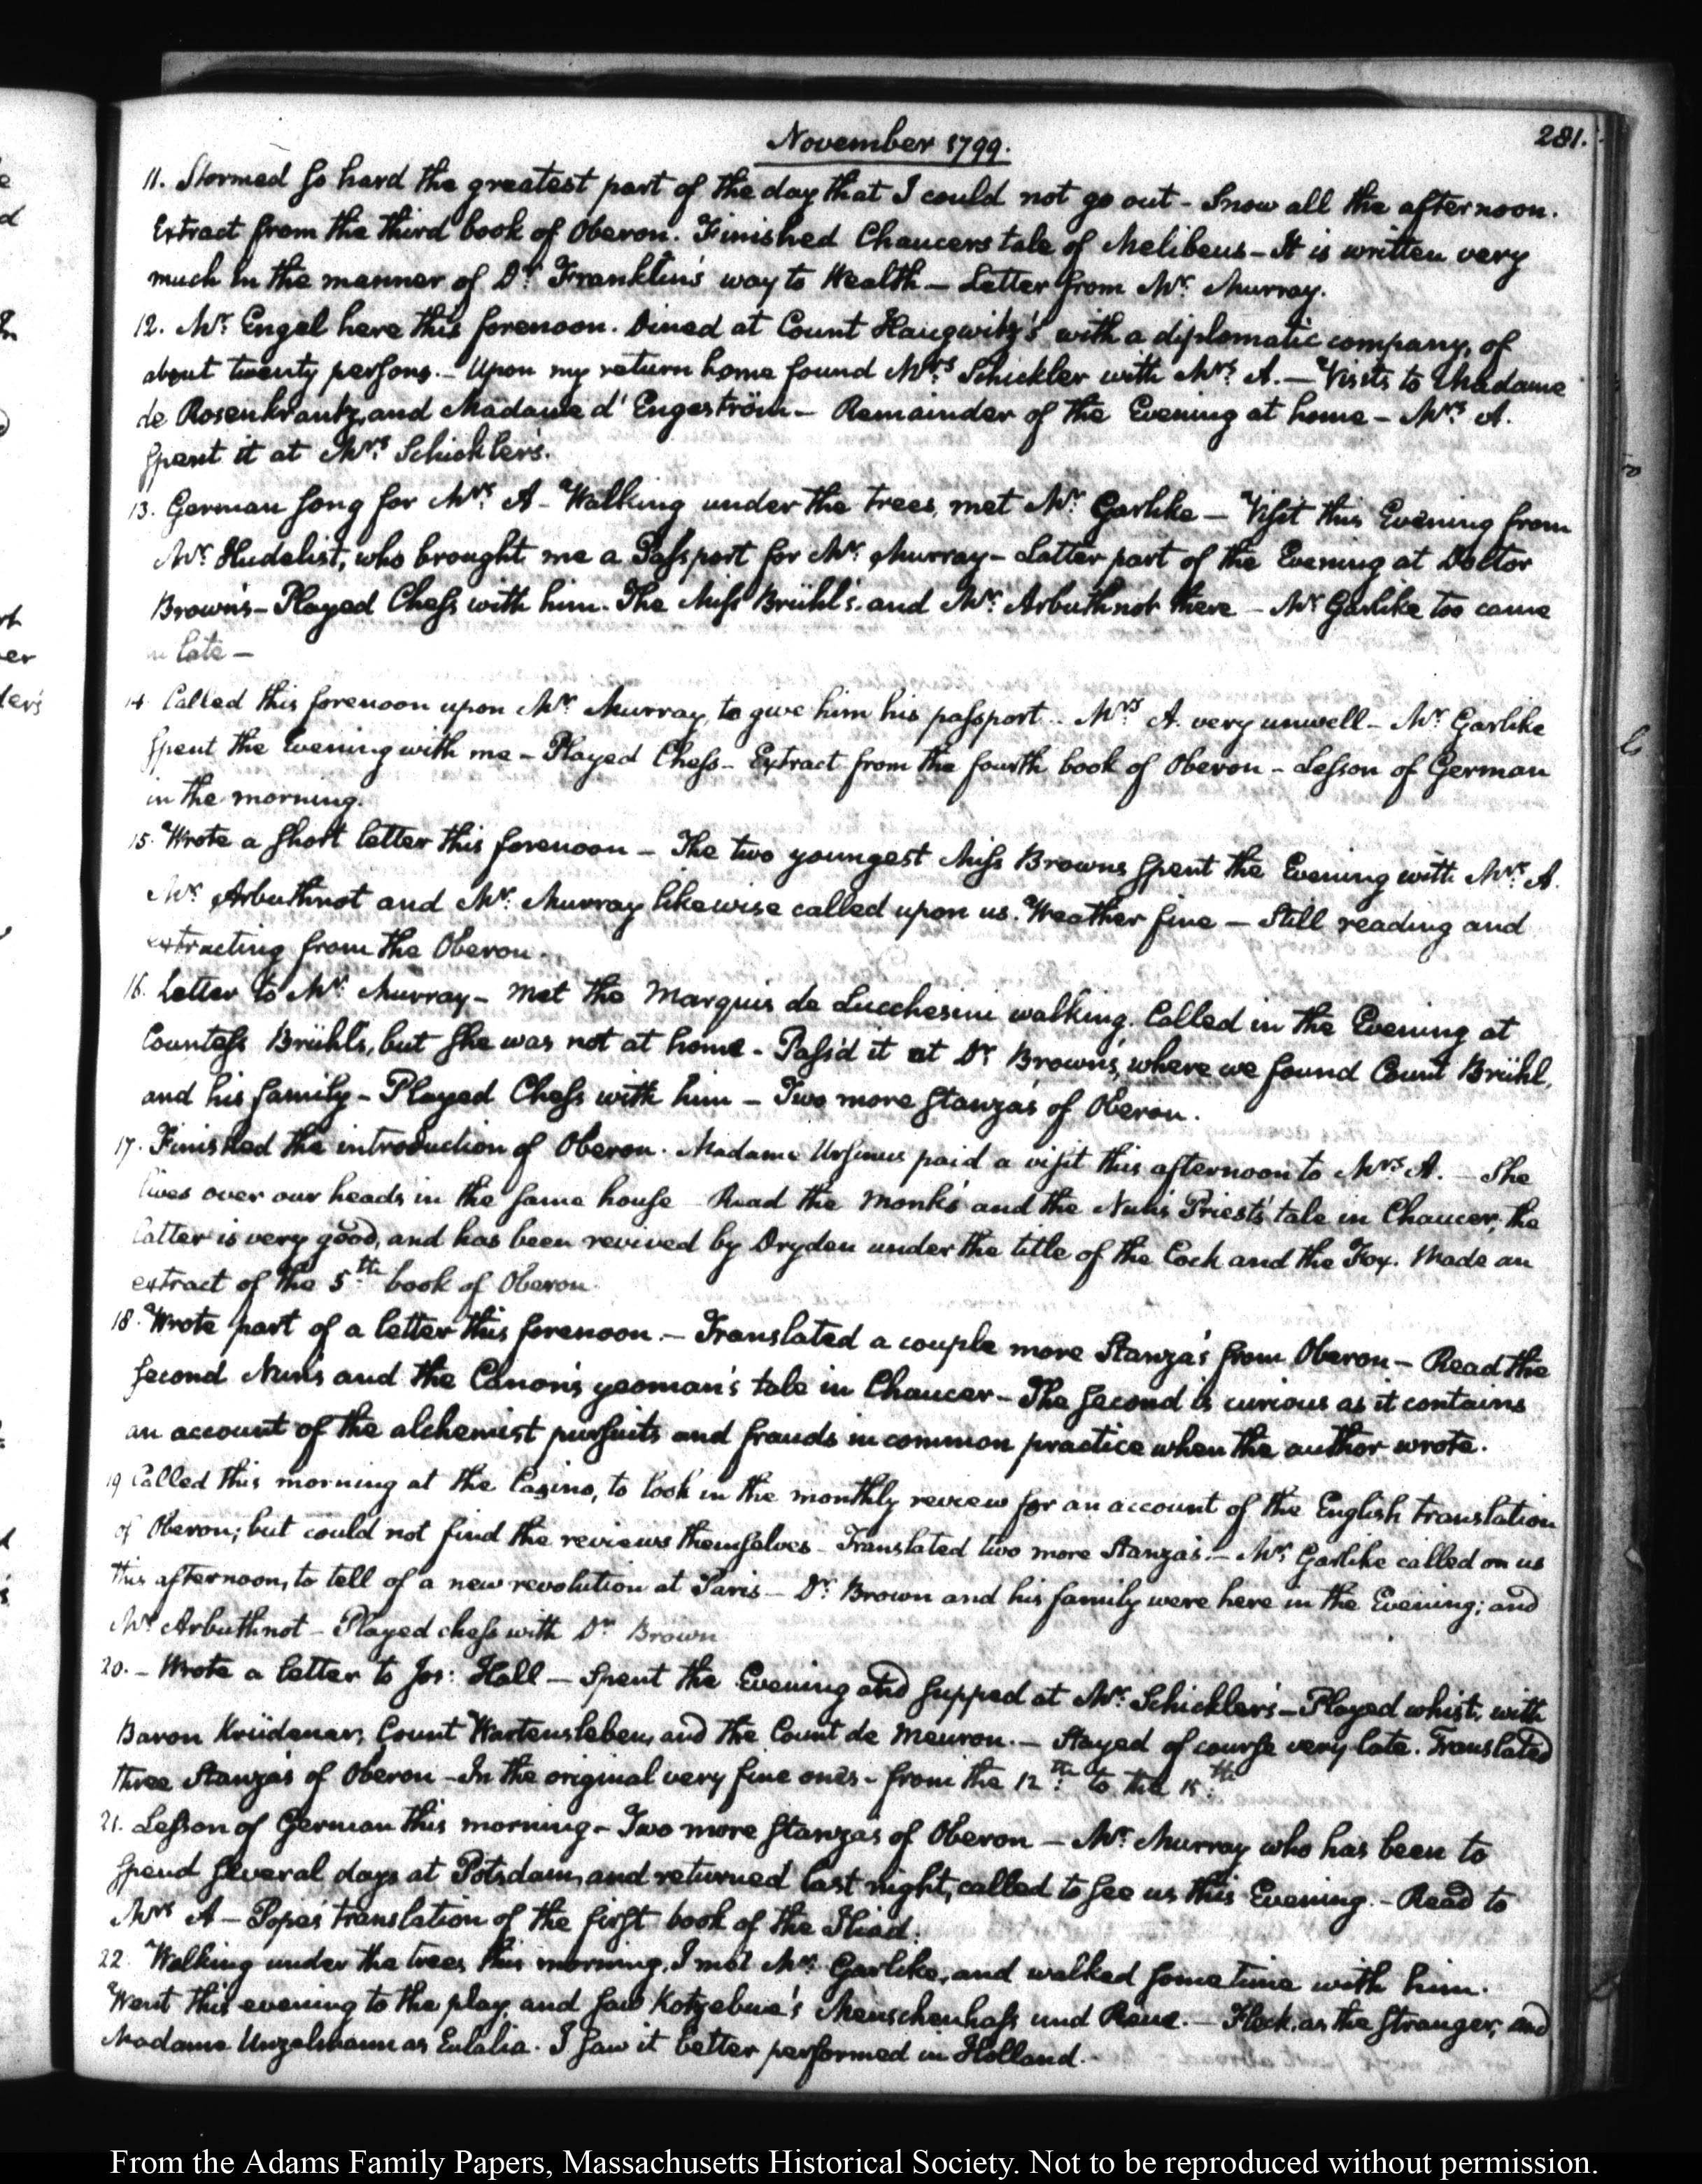 281.
November 1799.
11. Stormed so hard the greatest part of the day that I could not go out - Snow all the afternoon.
Extract from the third book of Oberon. Finished Chaucers tale of Melibeus - It is written very
much in the manner of Dr. Franklin's way to Wealth - Letter from Mr. Murray.
12. Mr. Engel here this forenoon. Dined at Count Haugwitz's with a diplomatic company, of
about twenty persons. - Upon my return home found Mrs. Schickler with Mrs. A. - Visits to Madame
de Rosenkrantz, and Madame d'Engeström - Remainder of the Evening at home - Mrs. A.
spent it at Mrs. Schickler's.
13. German song for Mrs. A - Walking under the trees, met Mr. Garlike - Visit this Evening from
Mr. Hudelist, who brought me a Passport for Mr. Murray - Latter part of the Evening at Doctor
Brown's - Played Chess with him. The Miss Brühl's, and Mr. Arbuthnot there - Mr. Garlike too came
in late -
14 Called this forenoon upon Mr. Murray, to give him his passport - Mrs. A. very unwell - Mr. Garlike
spent the Evening with me - Played Chess - Extract from the fourth book of Oberon - Lesson of German
in the morning.
15. Wrote a short letter this forenoon - The two youngest Miss Browns spent the Evening with Mrs. A.
Mr. Arbuthnot and Mr. Murray likewise called upon us. Weather fine - Still reading and
extracting from the Oberon.
16. Letter to Mr. Murray - Met the Marquis de Lucchesini walking. Called in the Evening at
Countess Brühl's, but she was not at home - Pass'd it at Dr. Brown's, where we found Count Brühl,
and his family - Played Chess with him - Two more Stanza's of Oberon.
17. Finished the introduction of Oberon. Madame Ursinus paid a visit this afternoon to Mrs. A. - She
lives over our heads in the same house - Read the Monk's and the Nun's Priest's tale in Chaucer; the
latter is very good, and has been revived by Dryden under the title of the Cock and the Fox. Made an
extract of the 5th. book of Oberon.
18. Wrote part of a letter this forenoon. - Translated a couple more Stanza's from Oberon - Read the
second Nun's and the Canon's yeoman's tale in Chaucer - The second is curious as it contains
an account of the alchemist pursuits and frauds in common practice when the author wrote.
19 Called this morning at the Casino, to look in the monthly review for an account of the English translation
of Oberon; but could not find the reviews themselves - Translated two more Stanzas. - Mr. Garlike called on us
this afternoon, to tell of a new revolution at Paris - Dr. Brown and his family were here in the Evening; and
Mr. Arbuthnot - Played chess with Dr. Brown
20. - Wrote a letter to Jos: Hall - Spent the Evening and supped at Mr. Schickler's - Played whist, with
Baron Krüdener, Count Wartensleben, and the Count de Meuron. - Stayed of course very late. Translated
three Stanza's of Oberon - In the original very fine ones - from the 12th. to the 15th.
21. Lesson of German this morning - Two more stanzas of Oberon - Mr. Murray who has been to
spend several days at Potsdam, and returned last night, called to see us this Evening. - Read to
Mrs A - Pope's translation of the first book of the Iliad.
22. Walking under the trees this morning, I met Mr. Garlike, and walked some time with him.
Went this evening to the play, and saw Kotzebue's Menschenhass und Reue. - Fleck, as the Stranger, and
Madame Unzelmann as Eulalia. I saw it better performed in Holland. -
From the Adams Family Papers, Massachusetts Historical Society. Not to be reproduced without permission.